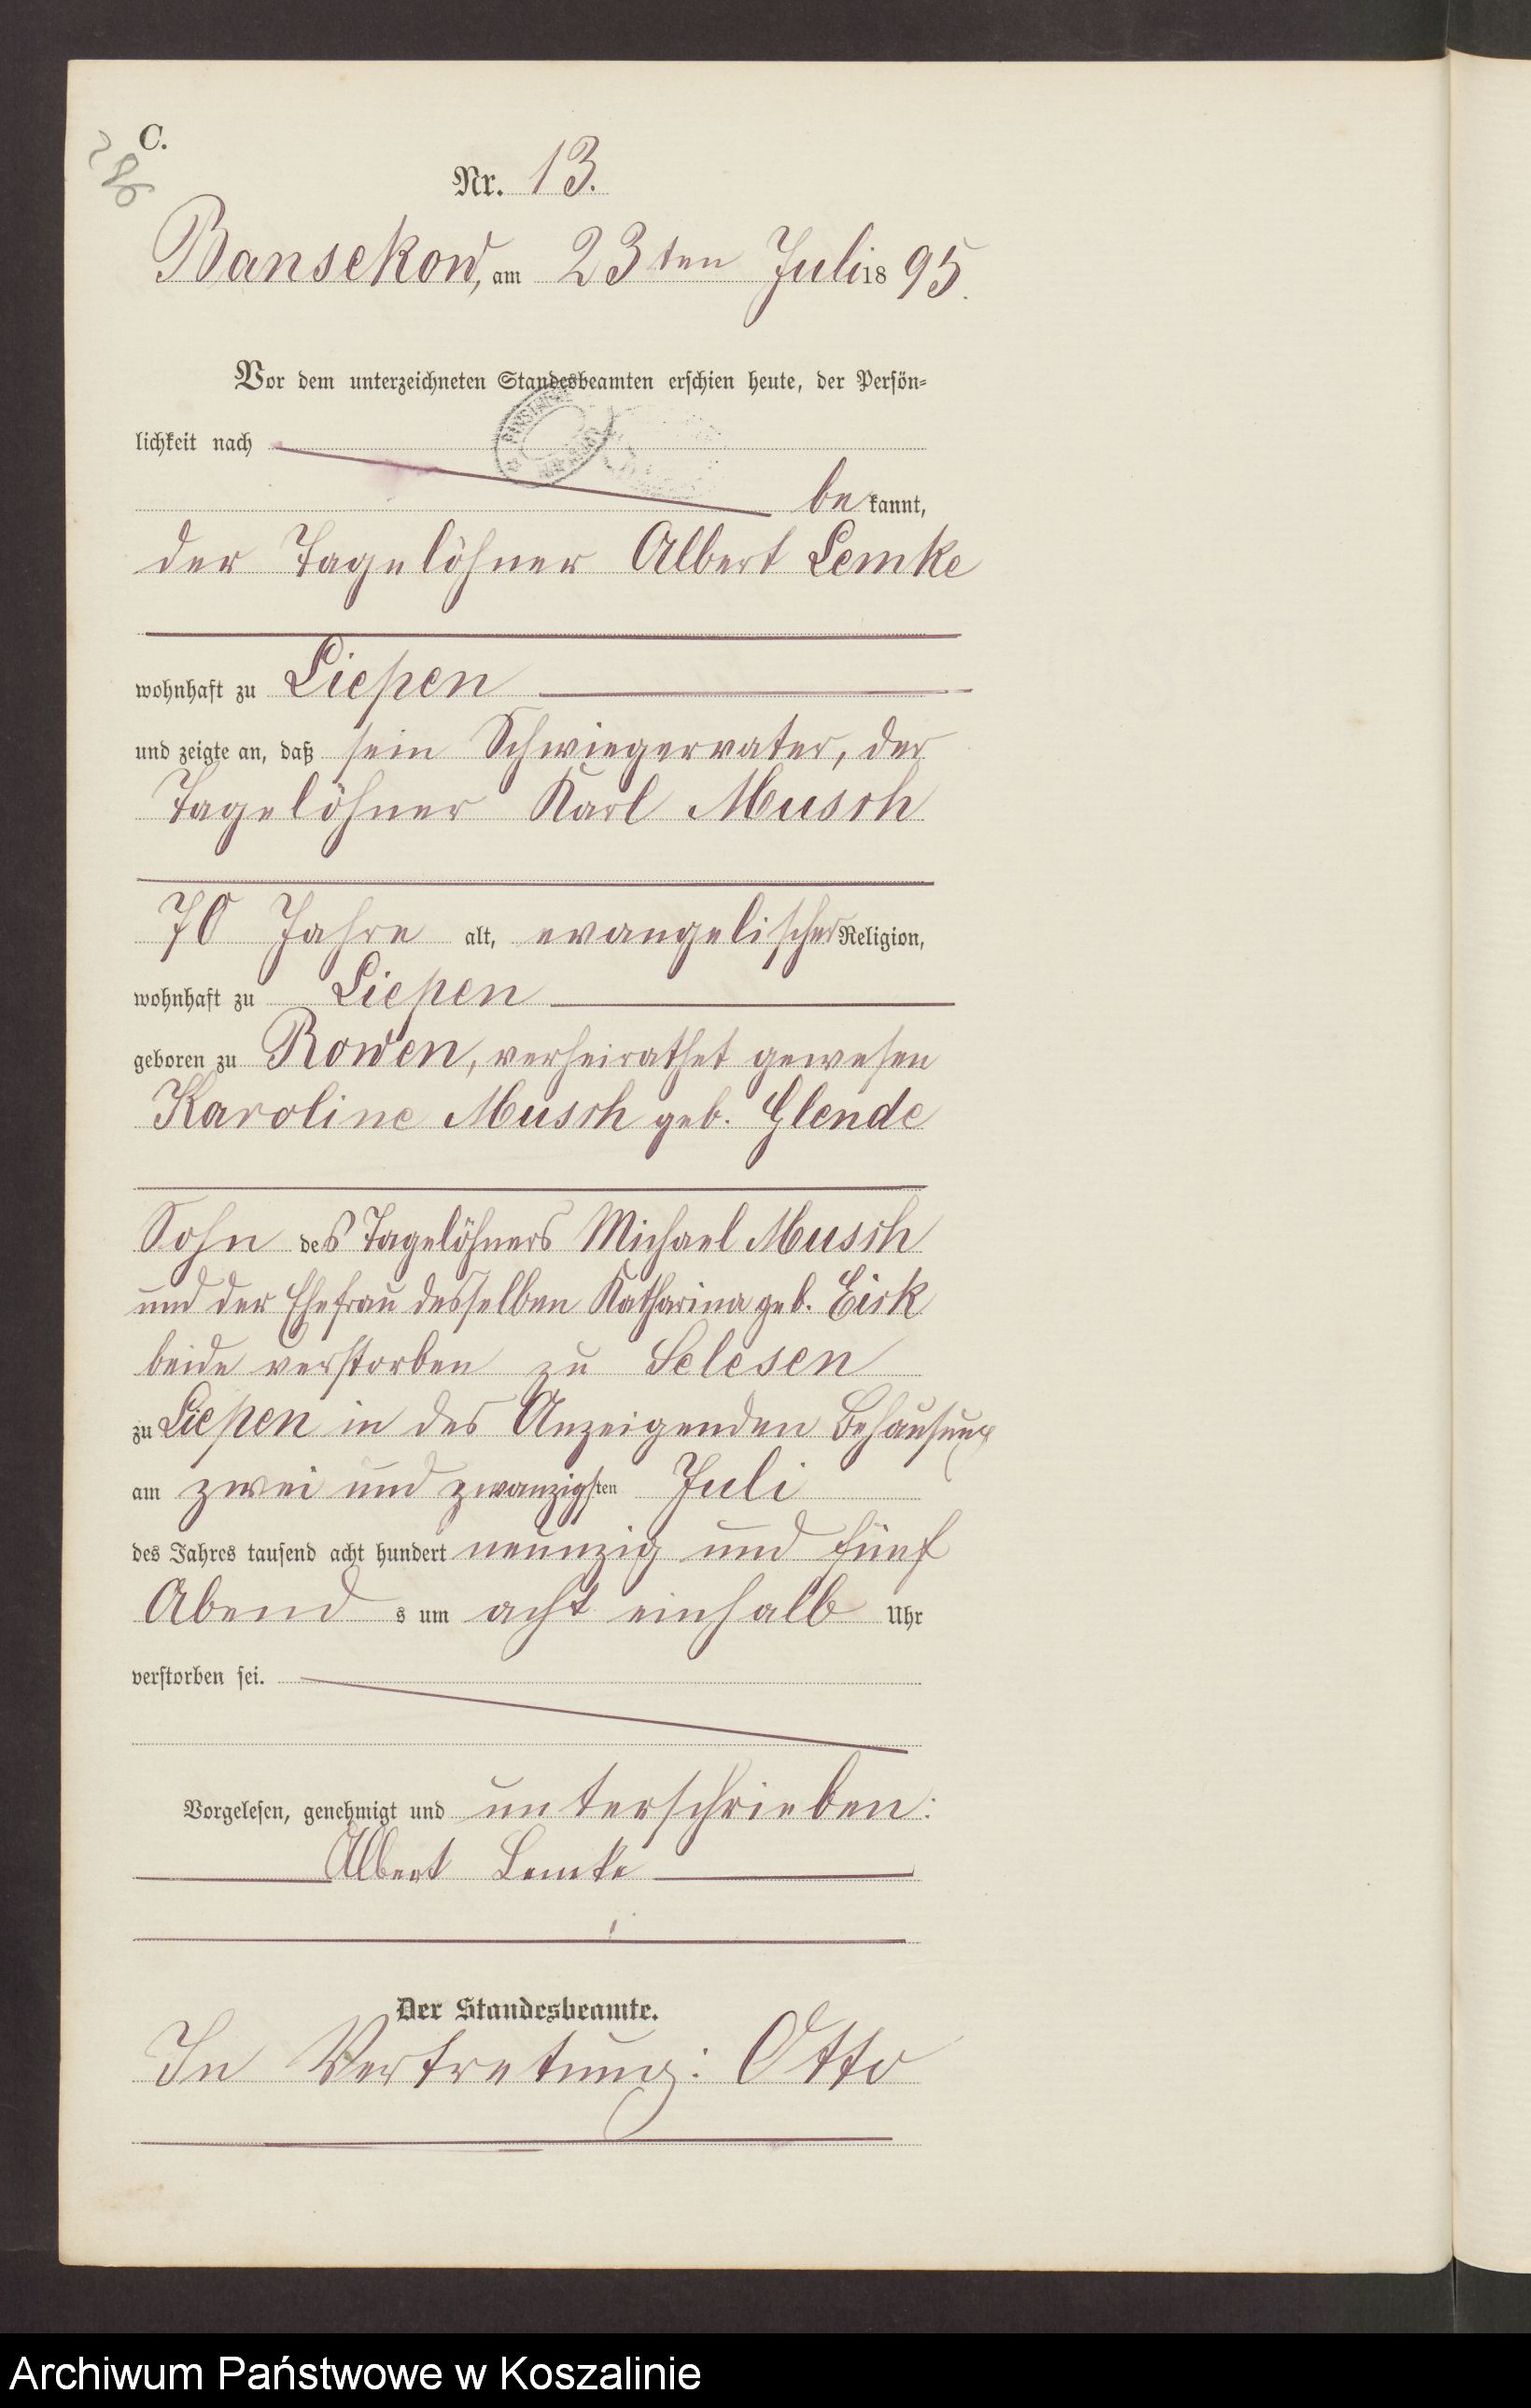 C.
Nr. 13.
Bansekow, am 23ten Juli 1895.
Vor dem unterzeichneten Standesbeamten erschien heute, der Persön-
lichkeit nach
bekannt,
der Tagelöhner Albert Lemke
wohnhaft zu Liepen
und zeigte an, daß sein Schwiegervater, der
Tagelöhner Karl Musch
70 Jahre alt, evangelischer Religion,
wohnhaft zu Liepen
geboren zu Rowen, verheirathet gewesen
Karoline Musch geb. Glende
Sohn des Tagelöhners Michael Musch
und der Ehefrau desselben Katharina geb. Eick
beide verstorben zu Selesen
zu Liepen in des Anzeigenden Behausung
am zwei und zwanzigsten Juli
des Jahres tausend acht hundert neunzig und fünf
Abends um acht einhalb Uhr
verstorben sei.
Vorgelesen, genehmigt und unterschrieben:
Albert Lemke
Der Standesbeamte.
In Vertretung: Otto
Archiwum Państwowe w Koszalinie